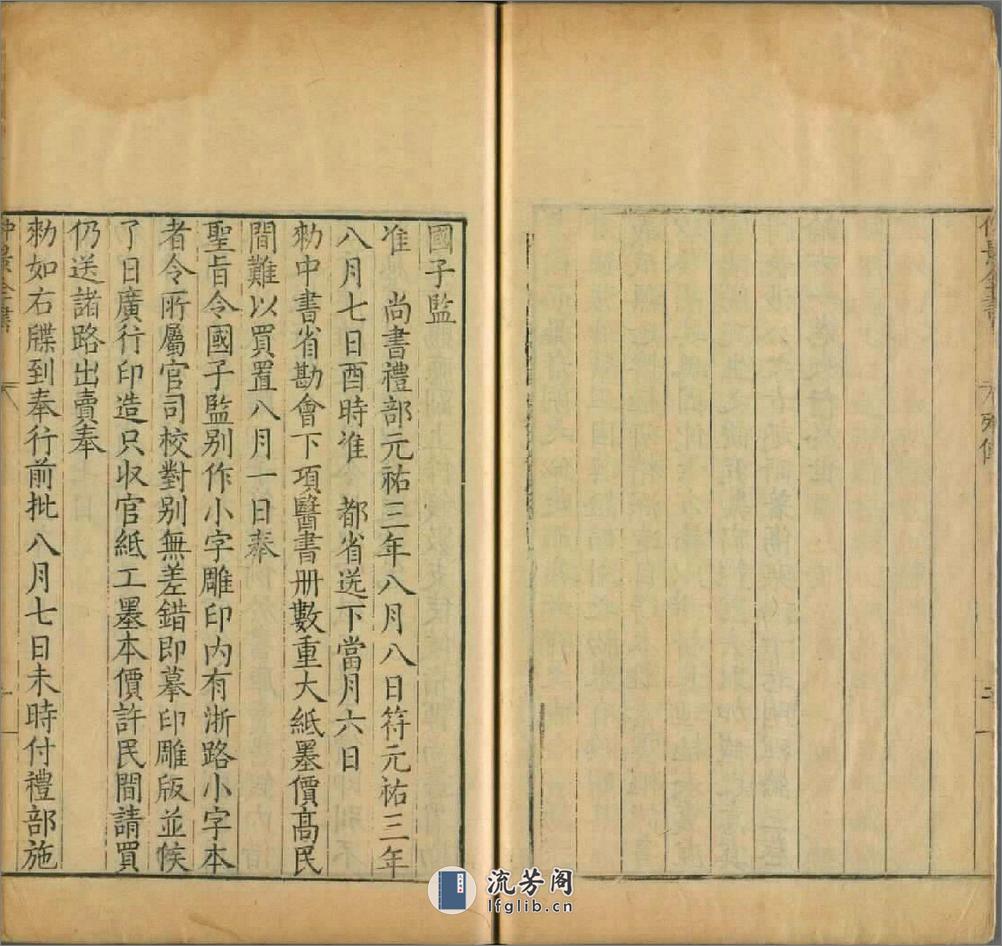 國子監
准　尚書禮部元祐三年八月八日符元祐三年
八月七日酉時准　都省送下當月六日
勑中書省勘會下項醫書册數重大紙墨價髙民
間難以買置八月一日奉
聖旨令國子監别作小字雕印内有浙路小字本
者令所屬官司校對别無差錯即摹印雕版並候
了日廣行印造只收官紙工墨本價許民間請買
仍送諸路出賣奉
勑如右牒到奉行前批八月七日未時付禮部施
流芳阁
lfglib.cn